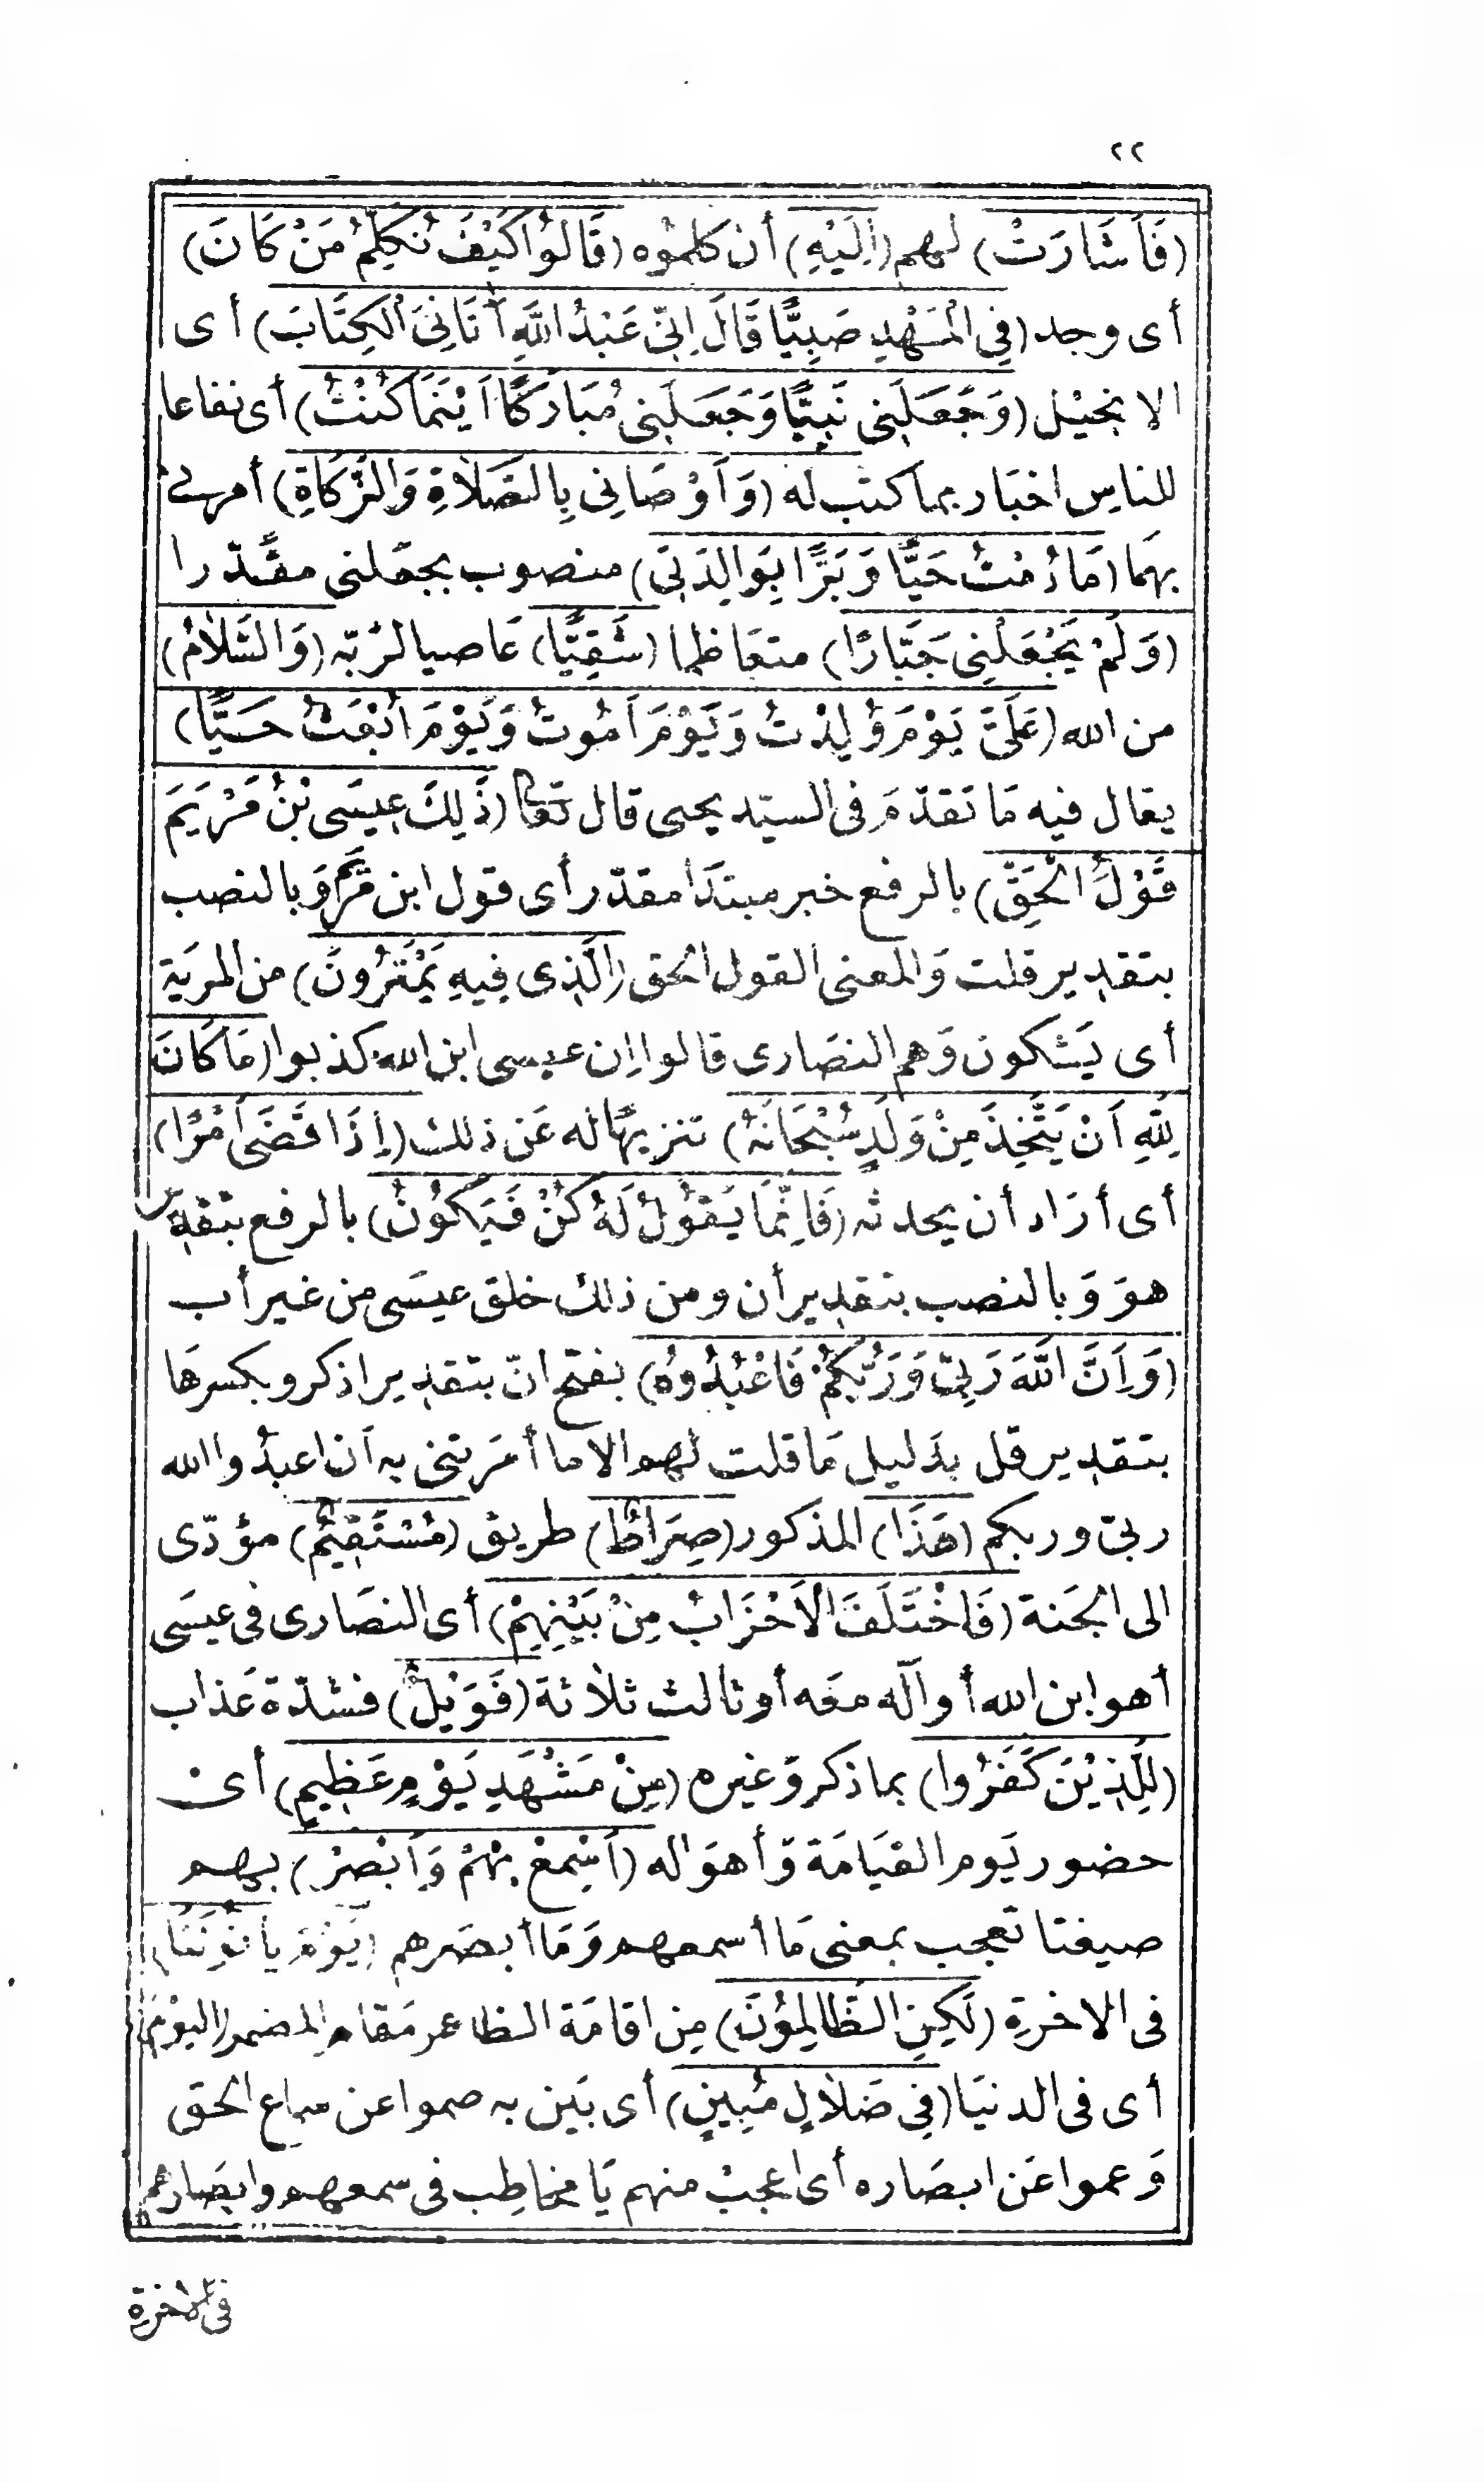 ٢٢
(فَأَشَارَتْ) لهم (إِلَيْهِ) أن كلموه (قَالُوا كَيْفَ نُكَلِّمُ مَنْ كَانَ)
أى وجد (فِي الْمَهْدِ صَبِيًّا قَالَ إِنِّي عَبْدُ اللَّهِ آتَانِيَ الْكِتَابَ) أى
الانجيل (وَجَعَلَنِي نَبِيًّا وَجَعَلَنِي مُبَارَكًا أَيْنَمَا كُنْتُ) أى نفاعا
للناس اخبار بما كتب له (وَأَوْصَانِي بِالصَّلَاةِ وَالزَّكَاةِ) أمرنى
بهما (مَا دُمْتُ حَيًّا وَبَرًّا بِوَالِدَتِي) منصوب بجعلنى مقدّرا
(وَلَمْ يَجْعَلْنِي جَبَّارًا) متعاظما (شَقِيًّا) عاصيا لربّه (وَالسَّلَامُ)
من الله (عَلَيَّ يَوْمَ وُلِدْتُ وَيَوْمَ أَمُوتُ وَيَوْمَ أُبْعَثُ حَيًّا)
يقال فيه ما تقدّم فى السيّد يحيى قال تعا (ذَلِكَ عِيسَى بْنُ مَرْيَمَ
قَوْلُ الْحَقِّ) بالرفع خبر مبتدا مقدّر أى قول ابن مريم وبالنصب
بتقدير قلت والمعنى القول الحق (الَّذِي فِيهِ يَمْتَرُونَ) من المرية
أى يشكون وهم النصارى قالوا إن عيسى ابن الله كذبوا (مَا كَانَ
لِلَّهِ أَنْ يَتَّخِذَ مِنْ وَلَدٍ سُبْحَانَهُ) تنزيها له عن ذلك (إِذَا قَضَى أَمْرًا)
أى أراد أن يحدثه (فَإِنَّمَا يَقُولُ لَهُ كُنْ فَيَكُونُ) بالرفع بتقدير
هو وبالنصب بتقدير أن ومن ذلك خلق عيسى من غير أب
(وَإِنَّ اللَّهَ رَبِّي وَرَبُّكُمْ فَاعْبُدُوهُ) بفتح انّ بتقدير اذكر وبكسرها
بتقدير قل بدليل ما قلت لهم الا ما أمرتنى به أن اعبدوا الله
ربى وربكم (هَذَا) المذكور (صِرَاطٌ) طريق (مُسْتَقِيمٌ) مؤدّى
الى الجنة (فَاخْتَلَفَ الْأَحْزَابُ مِنْ بَيْنِهِمْ) أى النصارى فى عيسى
أهو ابن الله أو آله معه أو ثالث ثلاثة (فَوَيْلٌ) فشدّة عذاب
(لِلَّذِينَ كَفَرُوا) بما ذكر وغيره (مِنْ مَشْهَدِ يَوْمٍ عَظِيمٍ) أى
حضور يوم القيامة وأهواله (أَسْمِعْ بِهِمْ وَأَبْصِرْ) بهم
صيغتا تعجب بمعنى ما أسمعهم وما أبصرهم (يَوْمَ يَأْتُونَنَا)
فى الاخرة (لَكِنِ الظَّالِمُونَ) من اقامة الظاهر مقام المضمر (الْيَوْمَ)
أى فى الدنيا (فِي ضَلَالٍ مُبِينٍ) أى بين به صموا عن سماع الحق
وعموا عن ابصاره أى اعجب منهم يا مخاطب فى سمعهم وابصارهم
فى الاخرة